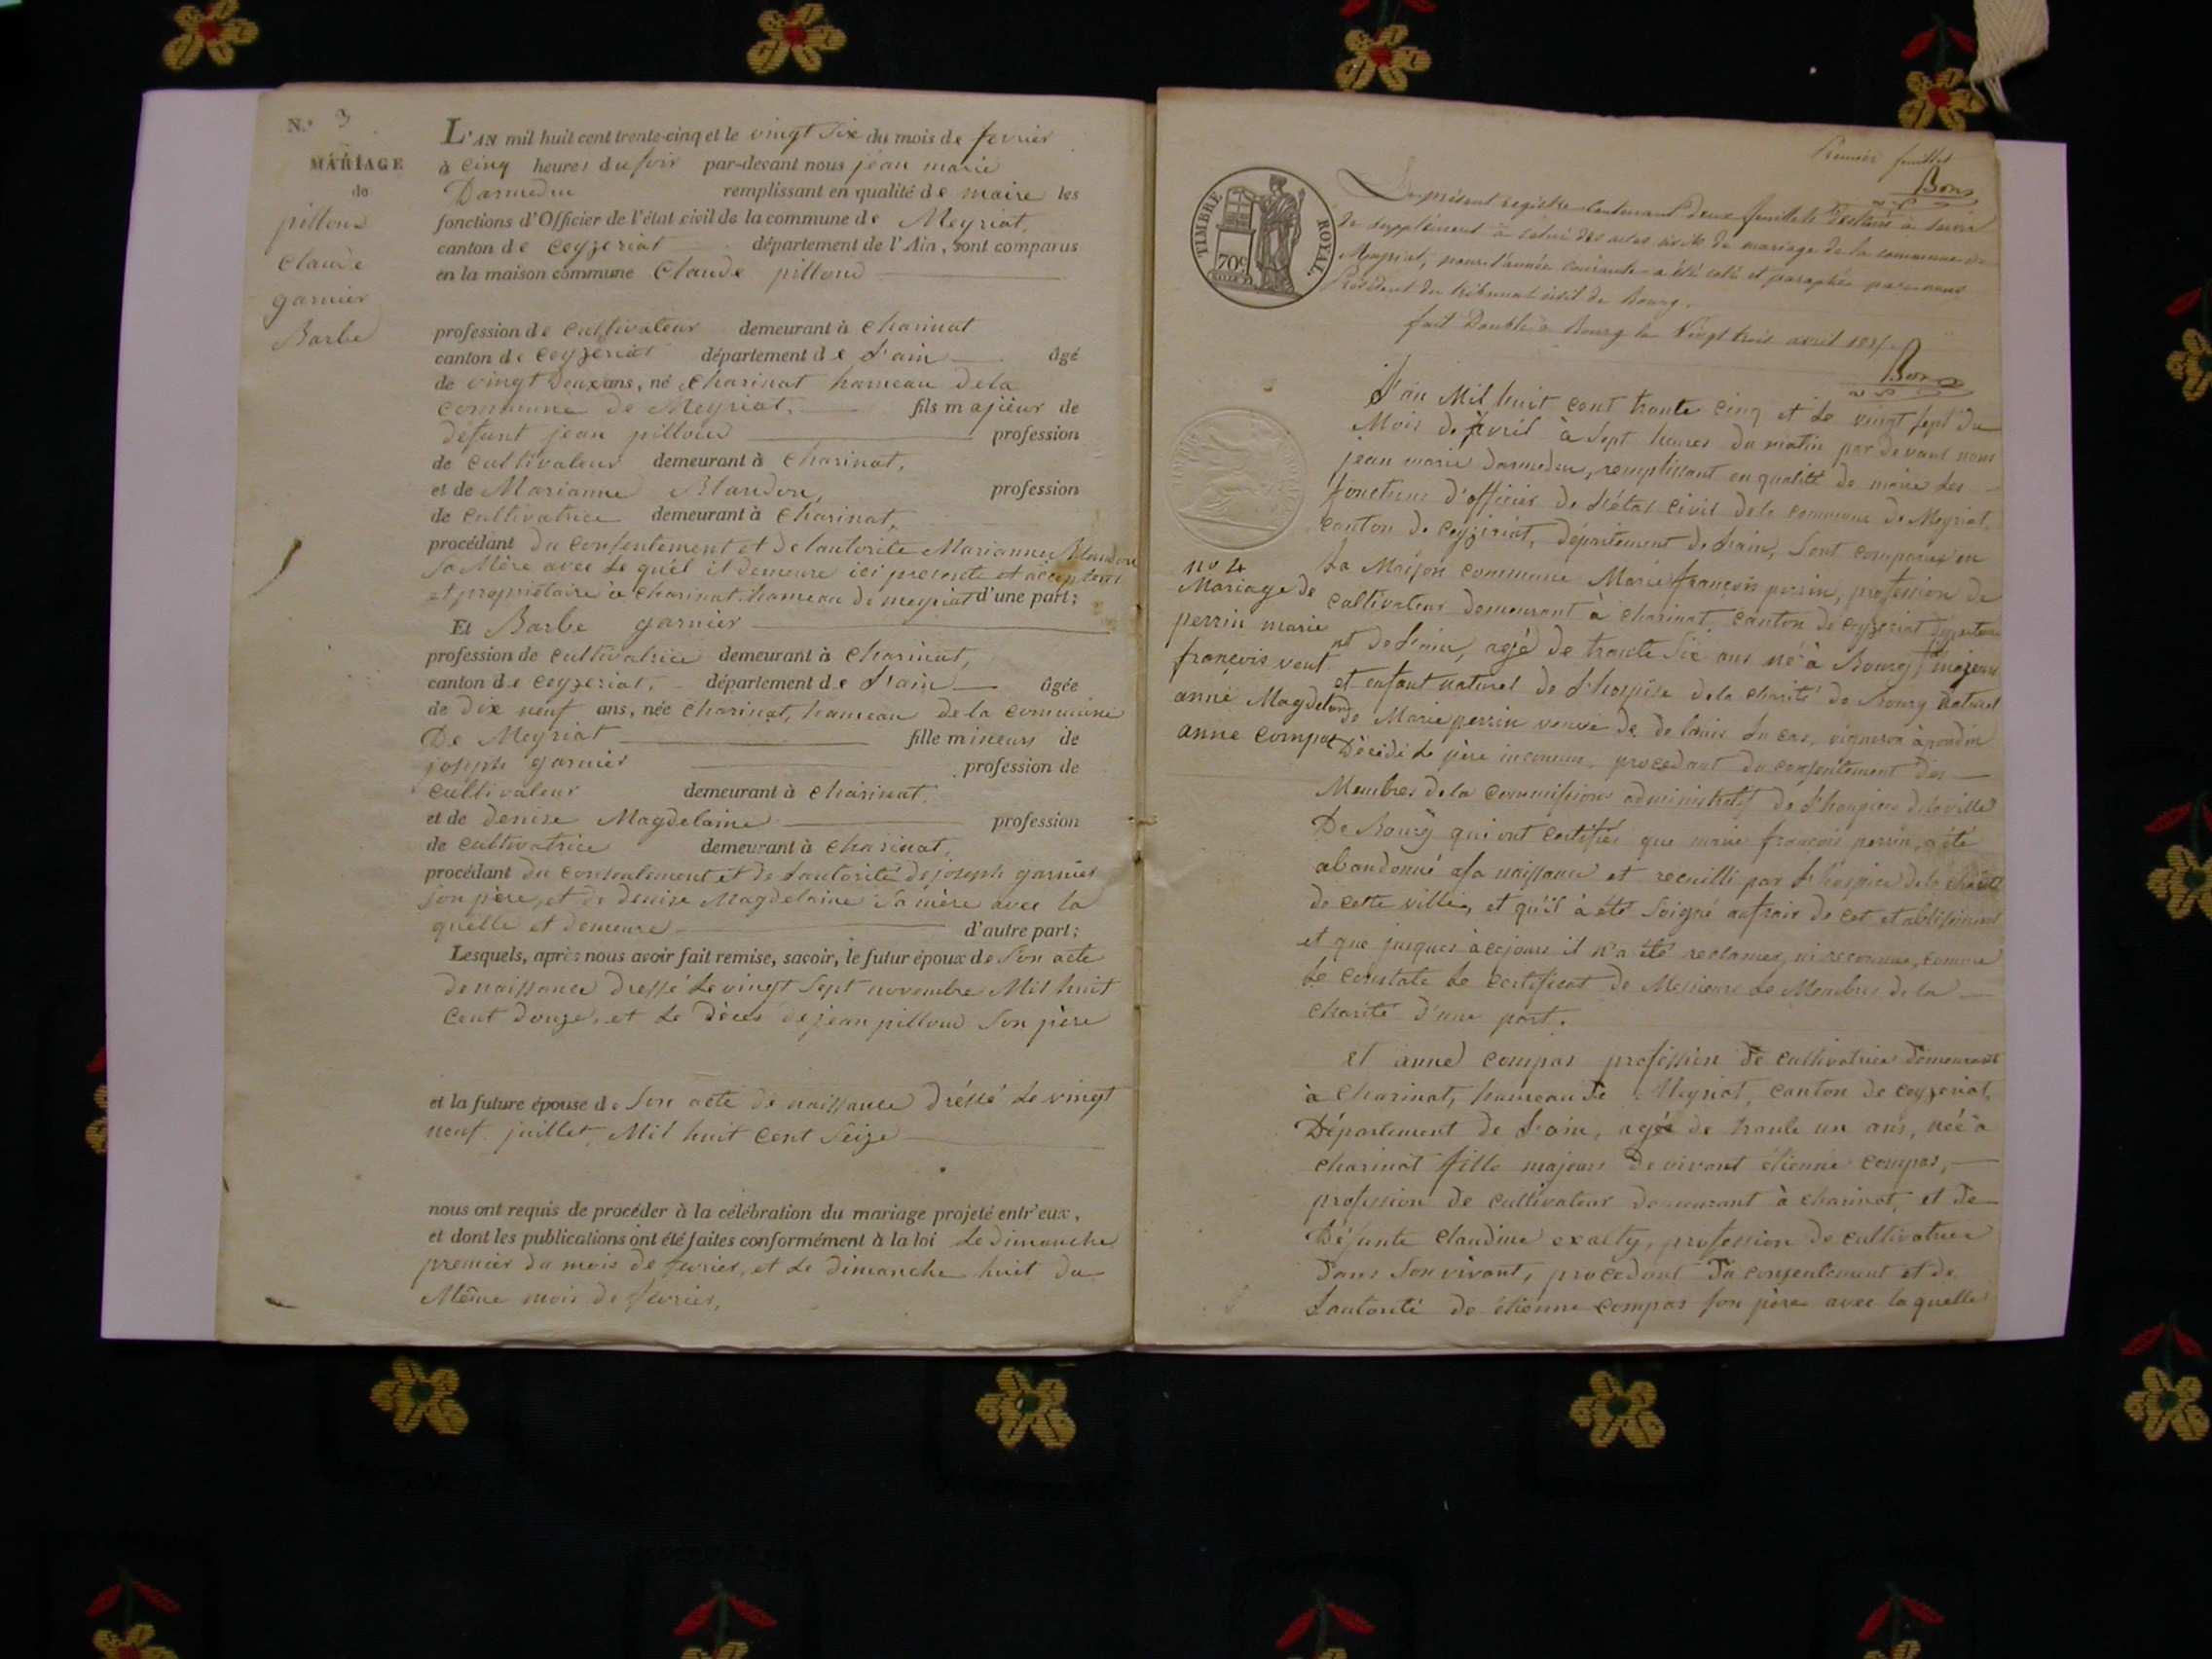 N.º 3
MARIAGE
de
pilloud
Claude
garnier
Barbe
L'AN mil huit cent trente-cinq et le vingt six du mois de fevrier
à cinq heures du soir par-devant nous jean marie
Darmedru remplissant en qualité de maire les
fonctions d'Officier de l'état civil de la commune de Meyriat,
canton de Ceyzeriat département de l'Ain, sont comparus
en la maison commune Claude pilloud
profession de cultivateur demeurant à Charinat
canton de Ceyzeriat département de L'ain âgé
de vingt Deux ans, né Charinat hameau dela
commune de Meyriat. fils majieur de
défunt jean pilloud profession
de cultivateur demeurant à Charinat,
et de Marianne Blandon, profession
de cultivatrice demeurant à Charinat,
procédant du consentement et de lautorite Marianne Blandon
sa Mère avec Le quél il demeure ici presente et acceptant
et propriétaire à Charinat hameau de meyriat d'une part;
Et Barbe garnier
profession de cultivatrice demeurant à Charinat,
canton de Ceyzeriat, département de L'ain âgée
de Dix neuf ans, née Charinat, hameau de la commune
De Meyriat fille mineure de
joseph garnier profession de
cultivateur demeurant à Charinat.
et de denise Magdelaine profession
de cultivatrice demeurant à Charinat,
procédant du consentement et de Lautorité de joseph garnier
son père, et de denise Magdelaine sa mère avec la
quelle et demeure d'autre part;
Lesquels, après nous avoir fait remise, savoir, le futur époux de Son acte
de naissance Dressé Le vingt Sept novembre Mil huit
Cent Douze, et Le Déces de jean pilloud Son père
et la future épouse de Son acte de naissance Dréssé Le vingt
neuf juillet Mil huit Cent Seize
nous ont requis de procéder à la célébration du mariage projeté entr'eux,
et dont les publications ont été faites conformément à la loi Le dimanche
premier du mois de fevrier, et Le dimanche huit du
Même mois de fevrier,
Premier feuillet
Bon
TIMBRE ROYAL.
70c
Le présent registre contenant deux feuillets à servir
de supplément à celui des actes civils de mariage de la commune de
Meyriat, pour l'année courante a été coté et paraphé par nous
Président du tribunal civil de Bourg.
fait Double à Bourg le Vingt trois avril 1835
Bon
L'an Mil huit cent trente cinq et Le vingt sept du
Mois de Avril à Sept heures du matin par devant nous
jean marie darmedru, remplissant en qualité de maire Les
fonctions d'officier de L'état civil dela commune de Meyriat,
canton de ceyzeriat, département de Lain, Sont comparus en
La Maison commune Marie françois perrin, profession de
cultivateur demeurant à charinat, canton de ceyzeriat departeme
nt de L'ain, agé de trente Six ans né à Bourg, majeurs
et enfant naturel de L'hospise dela charité de Bourg naturel
de Marie perrin veuve de
Décédé Le père inconnus. procedant du consentement des
Membres dela Commission administratif de L'hospice dela ville
De Bourg qui ont certifiés que marie françois perrin, a été
abandonné asa naissance et recueilli par L'hospice dela charité
de cette ville, et qu'il à été Soigné aufrair de cet etablisement
et que jusques à ce jour il n'a été reclamer, ni reconnue, comme
Le constate Le certificat de Messieurs Les Membres de la
charité d'une part.
no 4
Mariage de
perrin marie
françois veut
anne Magdelon
anne compas
et anne compas profession de cultivatrice demeurant
à Charinat, hameau de Meyriat, canton de ceyzeriat,
Département de L'ain, agée de trente un ans, née à
charinat fille majeurs de vivant étienne compas,
profession de cultivateur demeurant à charinat, et de
Défunte claudine exaity, profession de cultivatrice
dans Son vivant, procedant du consentement et de
Lautorité de étienne compas son père avec laquelle